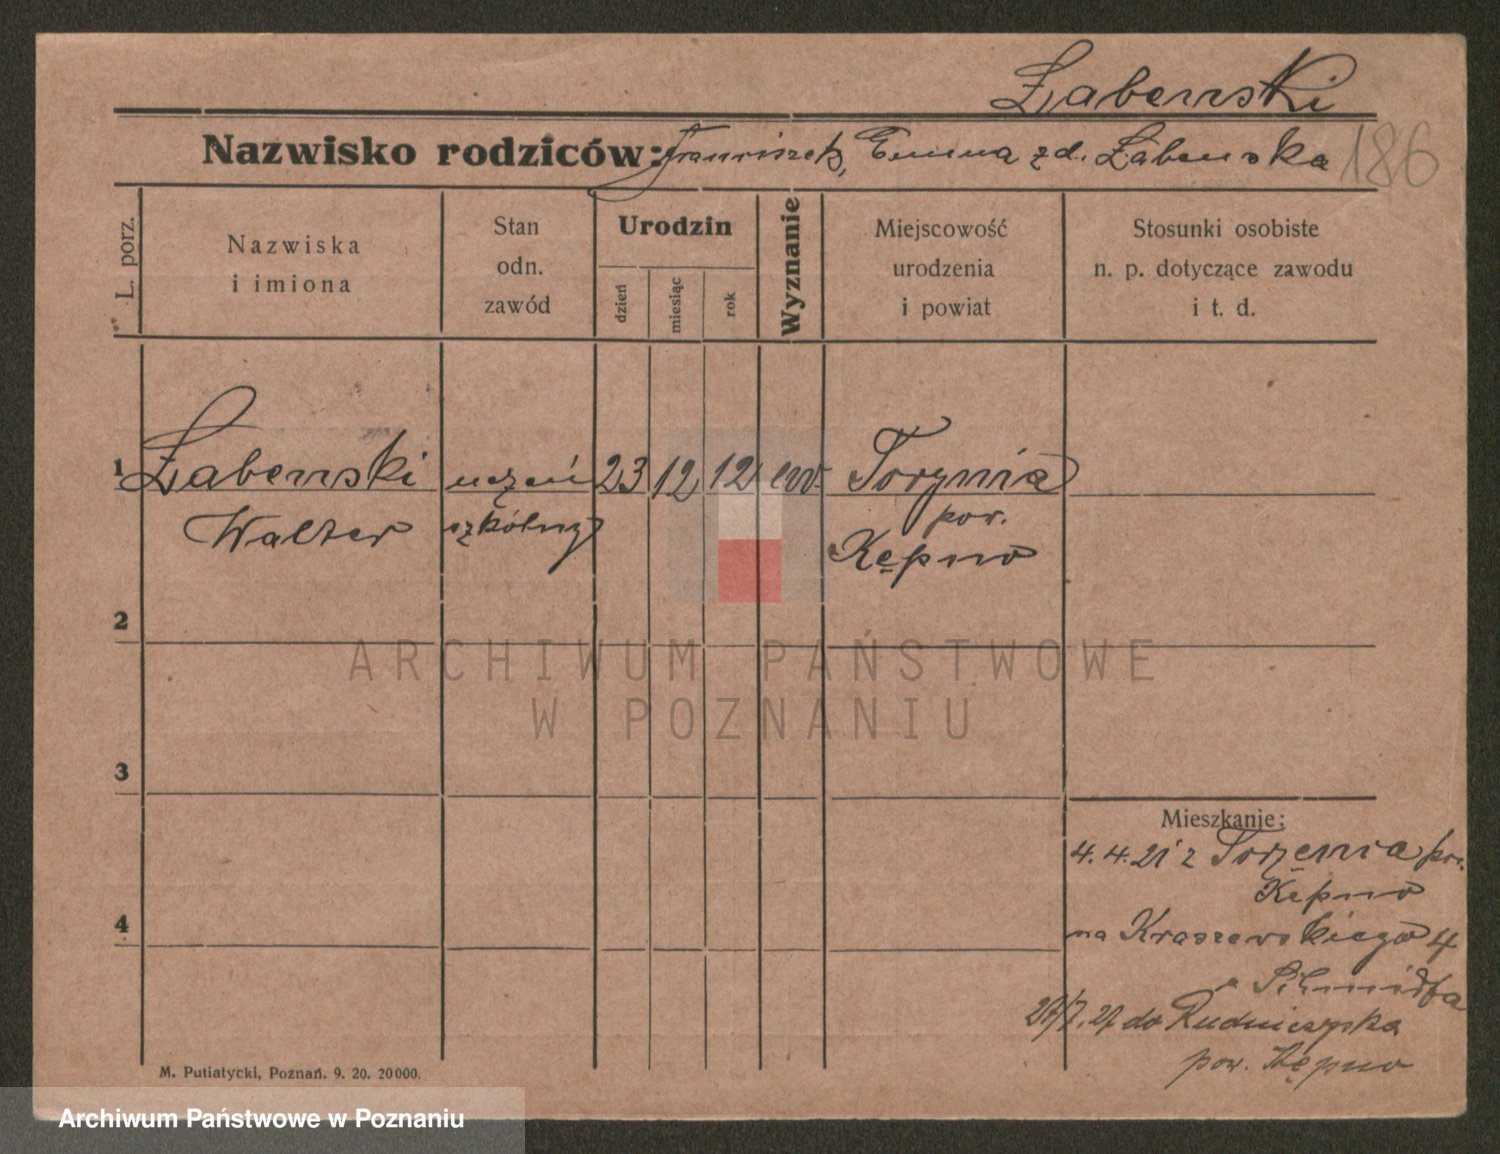 Łabenski
Nazwisko rodziców: Franciszek, Emma zd. Łabenska
186
L. porz.
Nazwiska
i imiona
Stan
odn.
zawód
Urodzin
dzień
miesiąc
rok
Wyznanie
Miejscowość
urodzenia
i powiat
Stosunki osobiste
n. p. dotyczące zawodu
i t. d.
1 Łabenski uczeń 23 12 12 ew. Torzynia
Walter szkólny pow.
Kępno
2
ARCHIWUM PAŃSTWOWE
W POZNANIU
3
Mieszkanie:
4.4.21 z Torzenia pow.
Kępno
4
na Kraszewskiego 4
u Schmidta
27/7.27 do Rudniczyska
pow. Kępno
M. Putiatycki, Poznań. 9. 20. 20000.
Archiwum Państwowe w Poznaniu